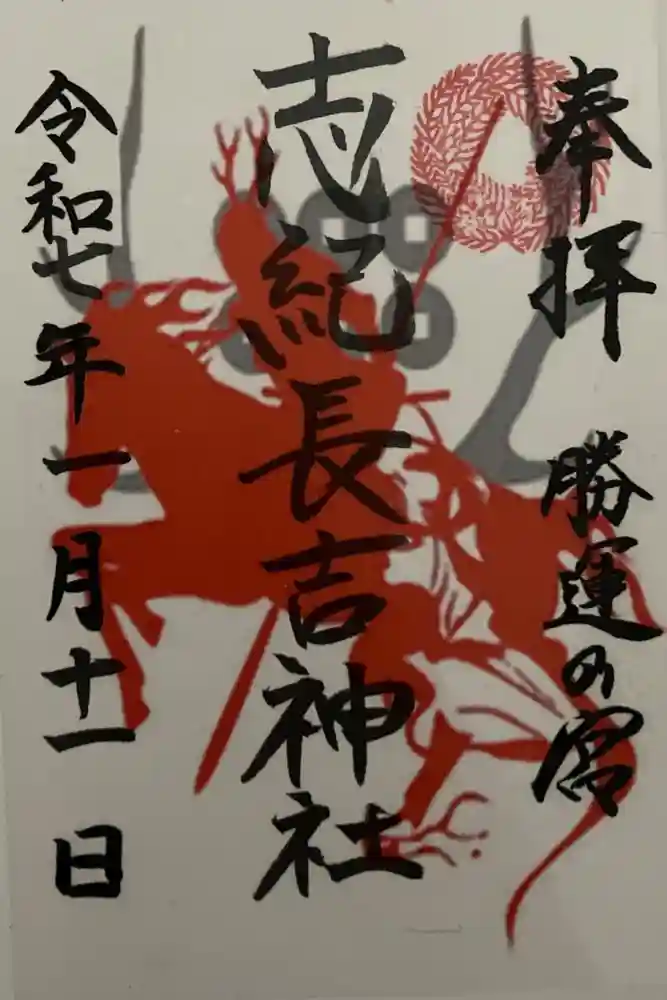 奉拝 勝運の宮
志紀長吉神社
令和七年一月十一日